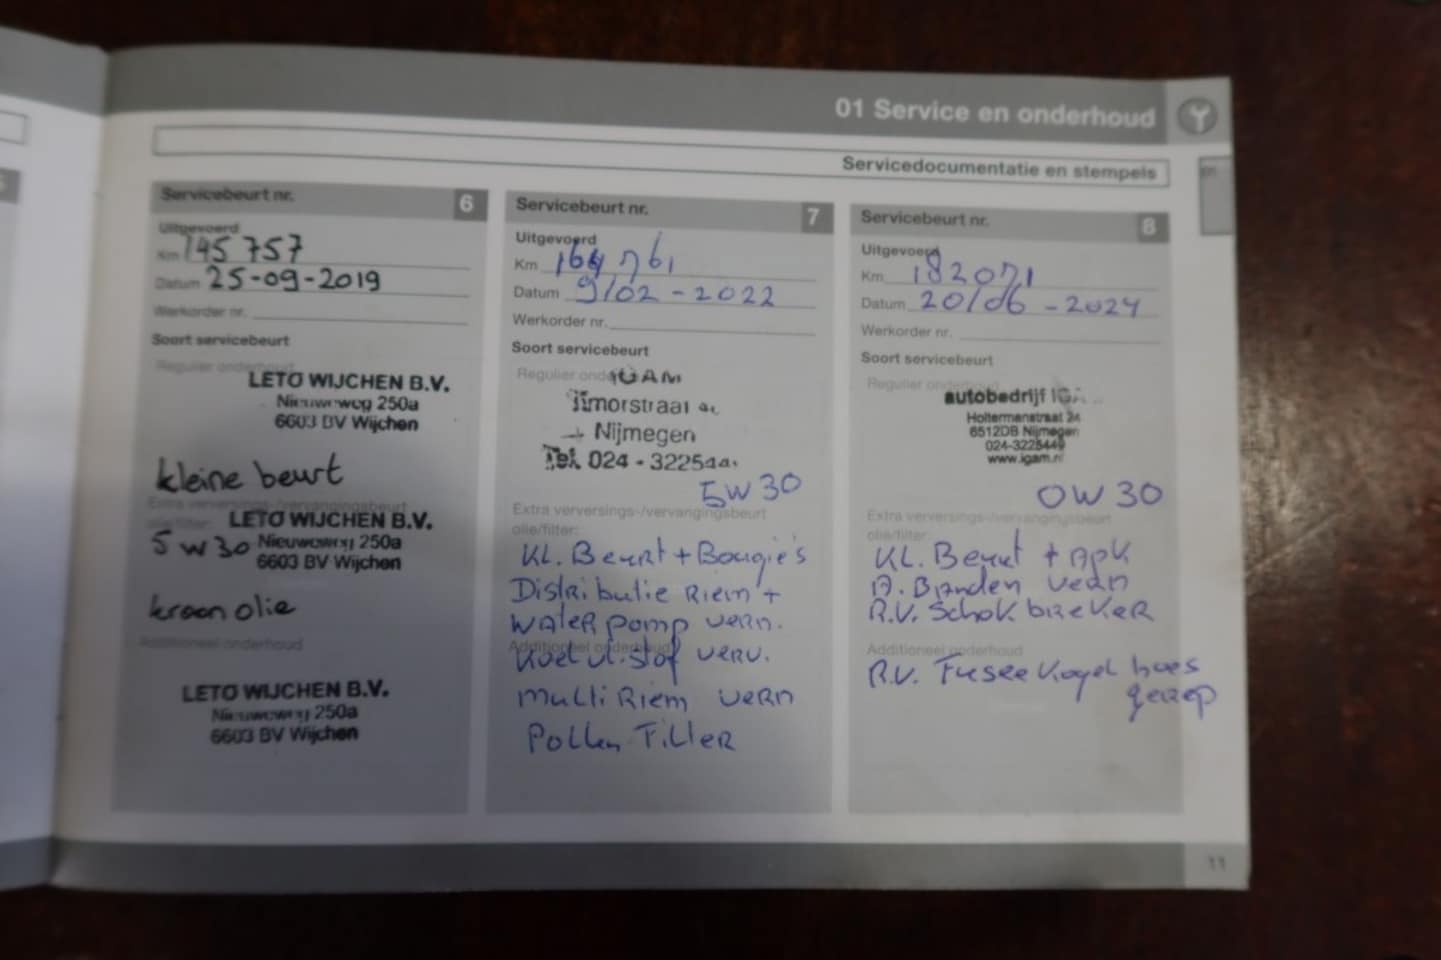 01 Service en onderhoud
Servicedocumentatie en stempels
Servicebeurt nr. 6
Uitgevoerd
Km 145 757
Datum 25-09-2019
Werkorder nr.
Soort servicebeurt
Regulier onderhoud
LETO WIJCHEN B.V.
Nieuweweg 250a
6603 BV Wijchen
kleine beurt
Extra verversings-/vervangingsbeurt
olie/filter:
LETO WIJCHEN B.V.
5 W 30 Nieuweweg 250a
6603 BV Wijchen
kroon olie
Additioneel onderhoud
LETO WIJCHEN B.V.
Nieuweweg 250a
6603 BV Wijchen
Servicebeurt nr. 7
Uitgevoerd
Km 164 761
Datum 9/02-2022
Werkorder nr.
Soort servicebeurt
Regulier
IGAM
Timorstraat
Nijmegen
Tel. 024 - 32254
5W30
Extra verversings-/vervangingsbeurt
olie/filter:
KL. Beurt + Bougie's
Distributie Riem +
WateR pomp vern.
Additioneel onderhoud
Koelvl.stof verv.
Multi Riem vern
Pollen Filter
Servicebeurt nr. 8
Uitgevoerd
Km 182071
Datum 20/06-2024
Werkorder nr.
Soort servicebeurt
Regulier onderhoud
autobedrijf IGA
Holtermanstraat 24
6512DB Nijmegen
024-3225449
www.igam.nl
0W30
Extra verversings-/vervangingsbeurt
olie/filter:
KL. Beurt + APK
A. Banden vern
R.V. Schok breker
Additioneel onderhoud
R.V. Fusee Kogel hoes
gerep
11